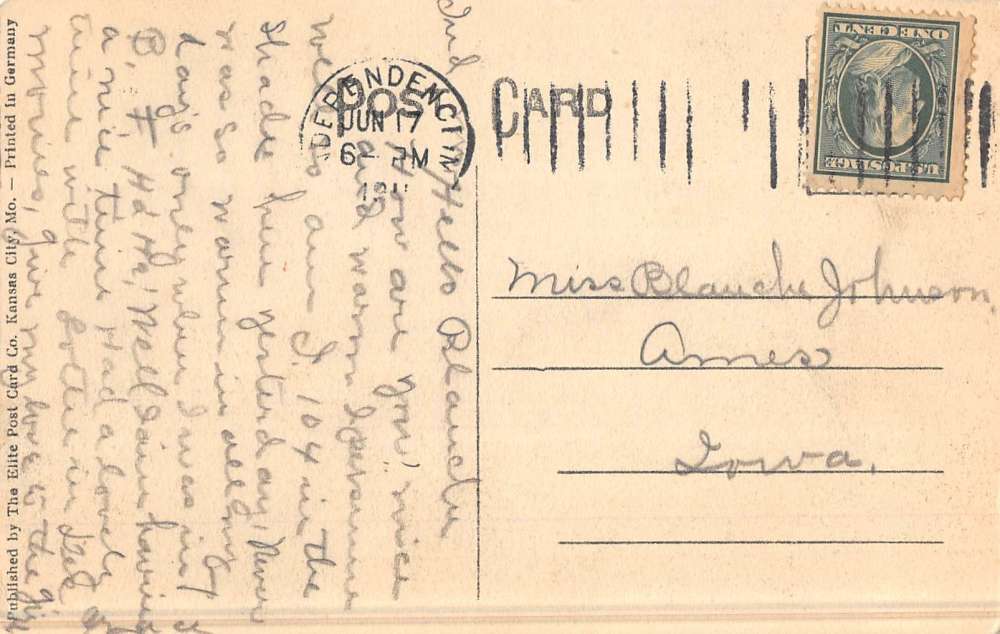 Published by The Elite Post Card Co. Kansas City, Mo. — Printed in Germany
POST CARD
INDEPENDENCE
JUN 17
6- PM
1911
ONE CENT
U.S. POSTAGE
Miss Blanche Johnson
Ames
Iowa.
Ind
Hello Blanche
How are you? nice
and warm I presume
well so am I. 104 in the
shade here yesterday! Never
was so warm in all my
days only when I was in
B. Ha Ha! Well I am having
a nice time Had a lovely
time with Lottie in
Movies, give my love to the girls